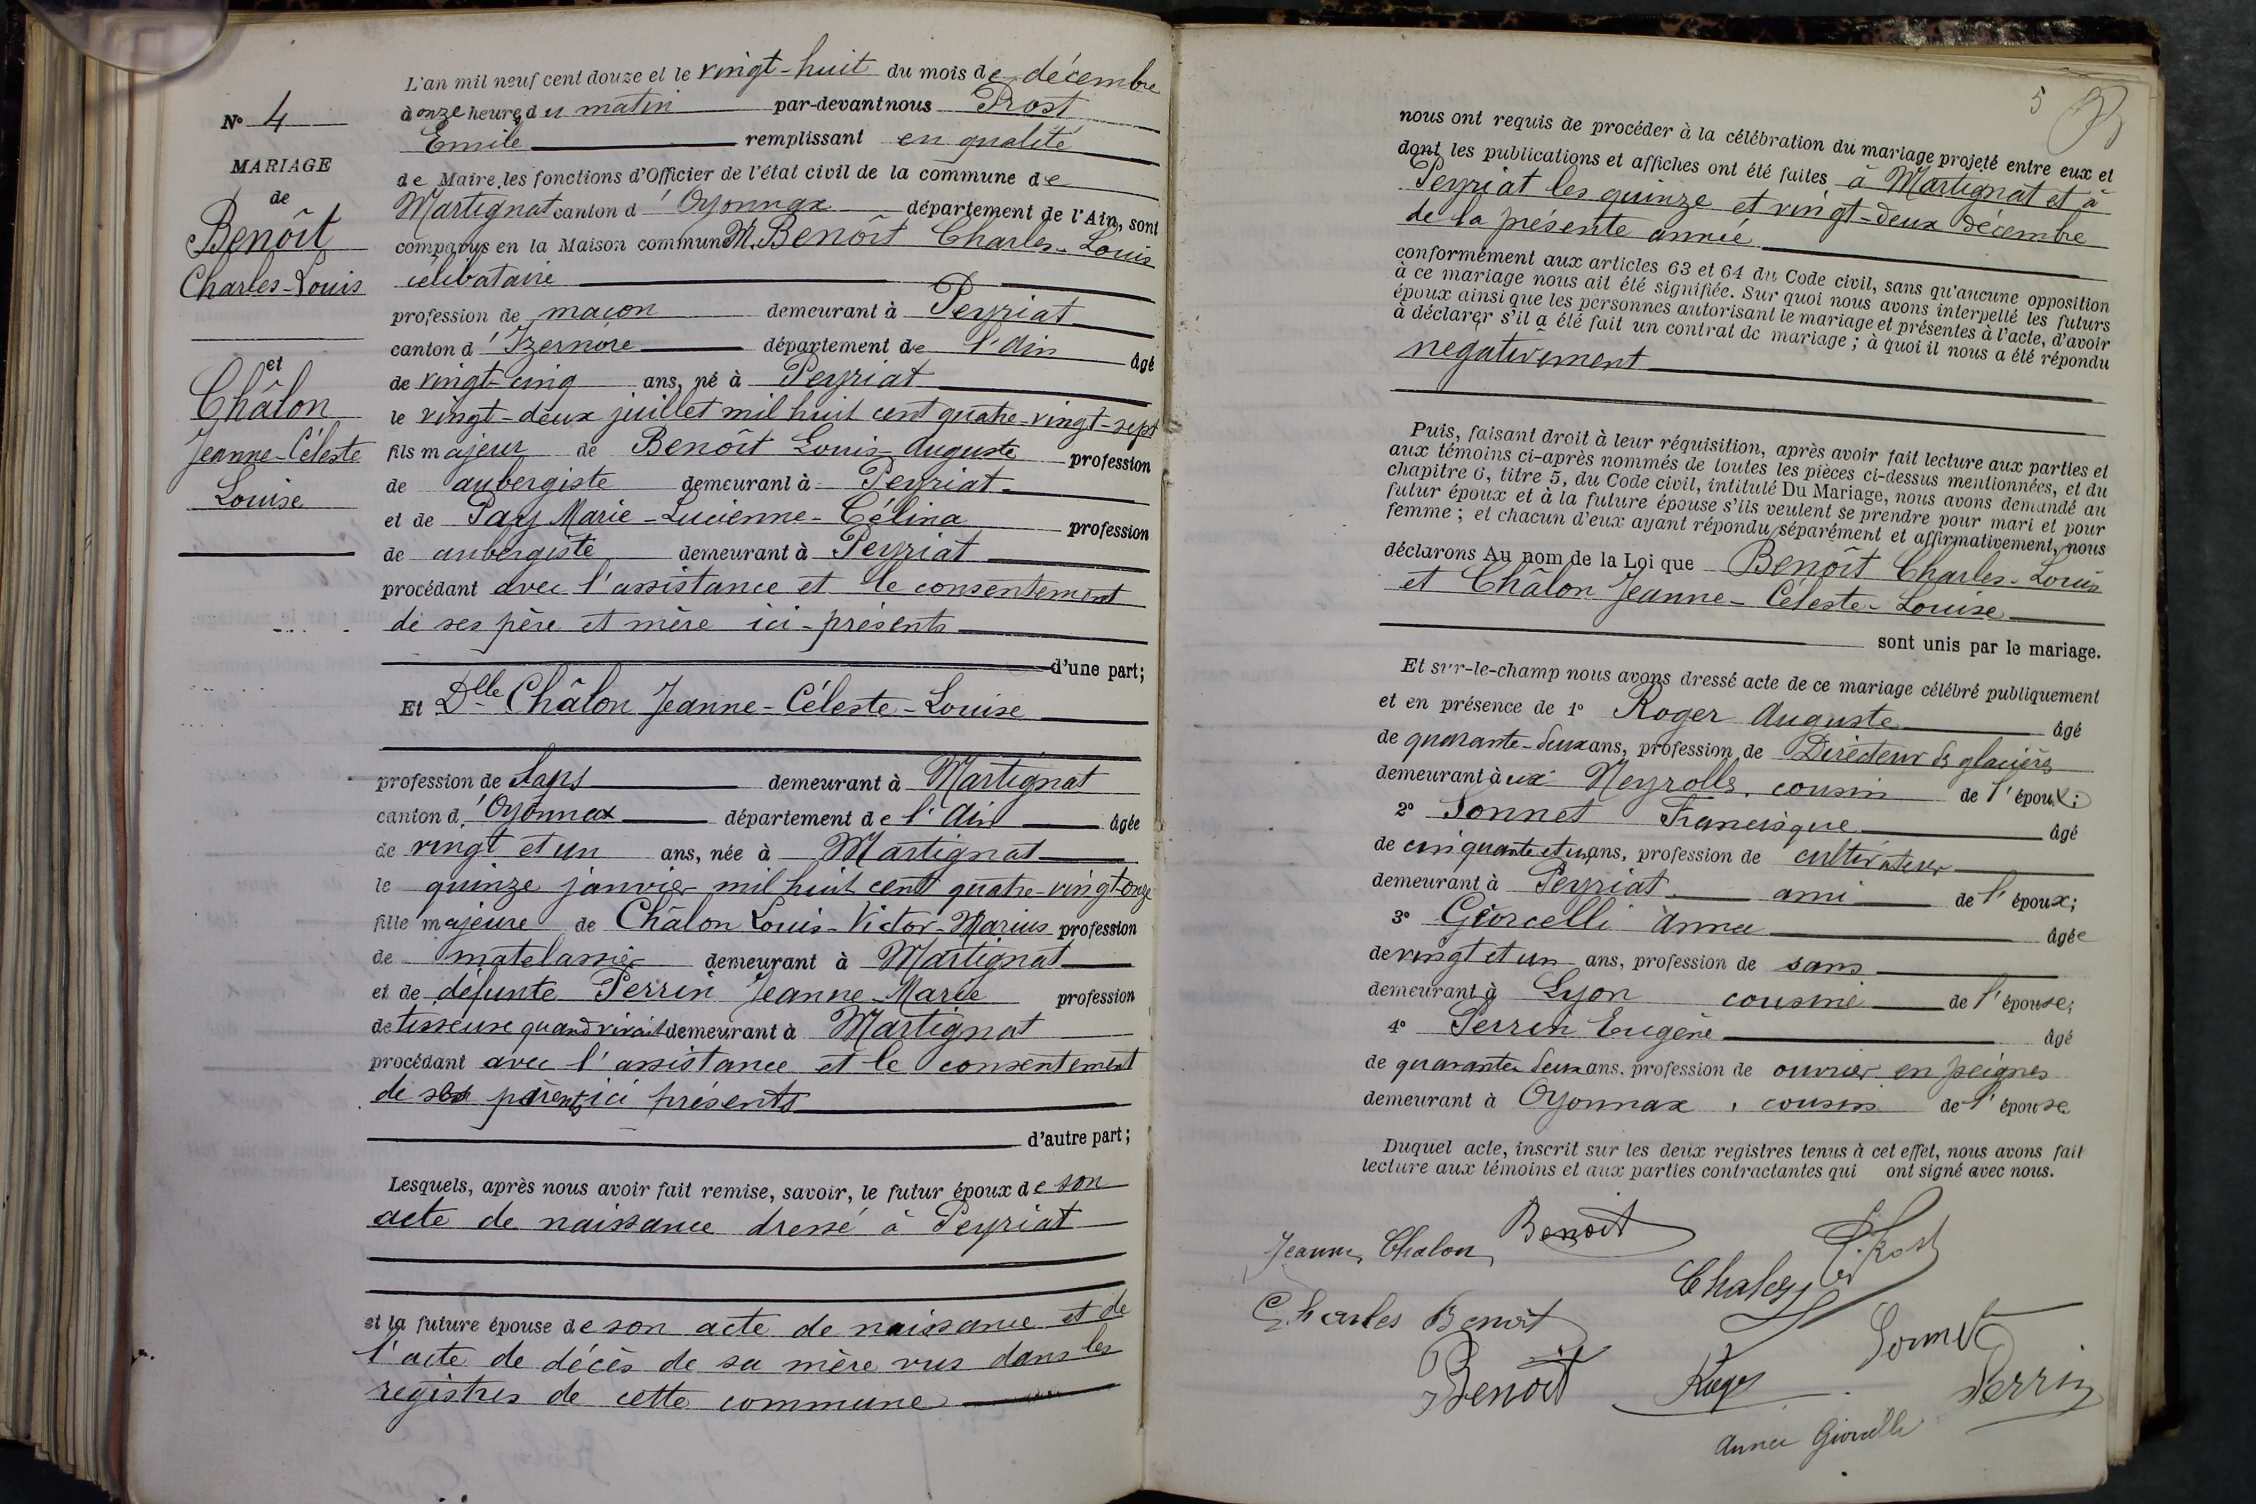 N° 4
MARIAGE
de
Benoît
Charles-Louis
et
Châlon
Jeanne-Céleste
Louise
L'an mil neuf cent douze et le vingt-huit du mois de décembre
à onze heures du matin par-devant nous Prost
Emile remplissant en qualité
de Maire les fonctions d'Officier de l'état civil de la commune de
Martignat canton d'Oyonnax département de l'Ain, sont
comparus en la Maison commune M. Benoît Charles-Louis
célibataire
profession de maçon demeurant à Peyriat
canton d'Izernore département de l'Ain âgé
de vingt-cinq ans, né à Peyriat
le vingt-deux juillet mil huit cent quatre-vingt-sept
fils majeur de Benoît Louis-Auguste profession
de aubergiste demeurant à Peyriat
et de Pay Marie-Lucienne-Célina profession
de aubergiste demeurant à Peyriat
procédant avec l'assistance et le consentement
de ses père et mère ici-présents
d'une part;
Et Dlle Châlon Jeanne-Céleste-Louise
profession de sans demeurant à Martignat
canton d'Oyonnax département de l'Ain âgée
de vingt et un ans, née à Martignat
le quinze janvier mil huit cent quatre-vingt-onze
fille majeure de Châlon Louis-Victor-Marius profession
de matelassier demeurant à Martignat
et de défunte Perrin Jeanne-Marie profession
de tisseuse quand vivait demeurant à Martignat
procédant avec l'assistance et le consentement
de ici présents
d'autre part;
Lesquels, après nous avoir fait remise, savoir, le futur époux de son
acte de naissance dressé à Peyriat
et la future épouse de son acte de naissance et de
l'acte de décès de sa mère vus dans les
registres de cette commune
5
nous ont requis de procéder à la célébration du mariage projeté entre eux et
dont les publications et affiches ont été faites à Martignat et à
Peyriat les quinze et vingt-deux décembre
de la présente année
conformément aux articles 63 et 64 du Code civil, sans qu'aucune opposition
à ce mariage nous ait été signifiée. Sur quoi nous avons interpellé les futurs
époux ainsi que les personnes autorisant le mariage et présentes à l'acte, d'avoir
à déclarer s'il a été fait un contrat de mariage; à quoi il nous a été répondu
negativement
Puis, faisant droit à leur réquisition, après avoir fait lecture aux parties et
aux témoins ci-après nommés de toutes les pièces ci-dessus mentionnées, et du
chapitre 6, titre 5, du Code civil, intitulé Du Mariage, nous avons demandé au
futur époux et à la future épouse s'ils veulent se prendre pour mari et pour
femme; et chacun d'eux ayant répondu séparément et affirmativement, nous
déclarons Au nom de la Loi que Benoît Charles-Louis
et Châlon Jeanne-Céleste-Louise
sont unis par le mariage.
Et sur-le-champ nous avons dressé acte de ce mariage célébré publiquement
et en présence de 1° Roger Auguste âgé
de quarante-deux ans, profession de Directeur de glacières
demeurant à ux Neyrolles, cousin de l'époux;
2° Sonnet Francisque âgé
de cinquante et un ans, profession de cultivateur
demeurant à Peyriat ami de l'époux;
3° Giorcelli Anna âgée
de vingt et un ans, profession de sans
demeurant à Lyon cousine de l'épouse;
4° Perrin Eugène âgé
de quarante deux ans, profession de ouvrier en peignes
demeurant à Oyonnax, cousin de l'épouse.
Duquel acte, inscrit sur les deux registres tenus à cet effet, nous avons fait
lecture aux témoins et aux parties contractantes qui ont signé avec nous.
Jeanne Chalon Benoit E. Prost
Chalon
Charles Benoit Sonnet
Benoit Roger Perrin
Anna Giorcelli